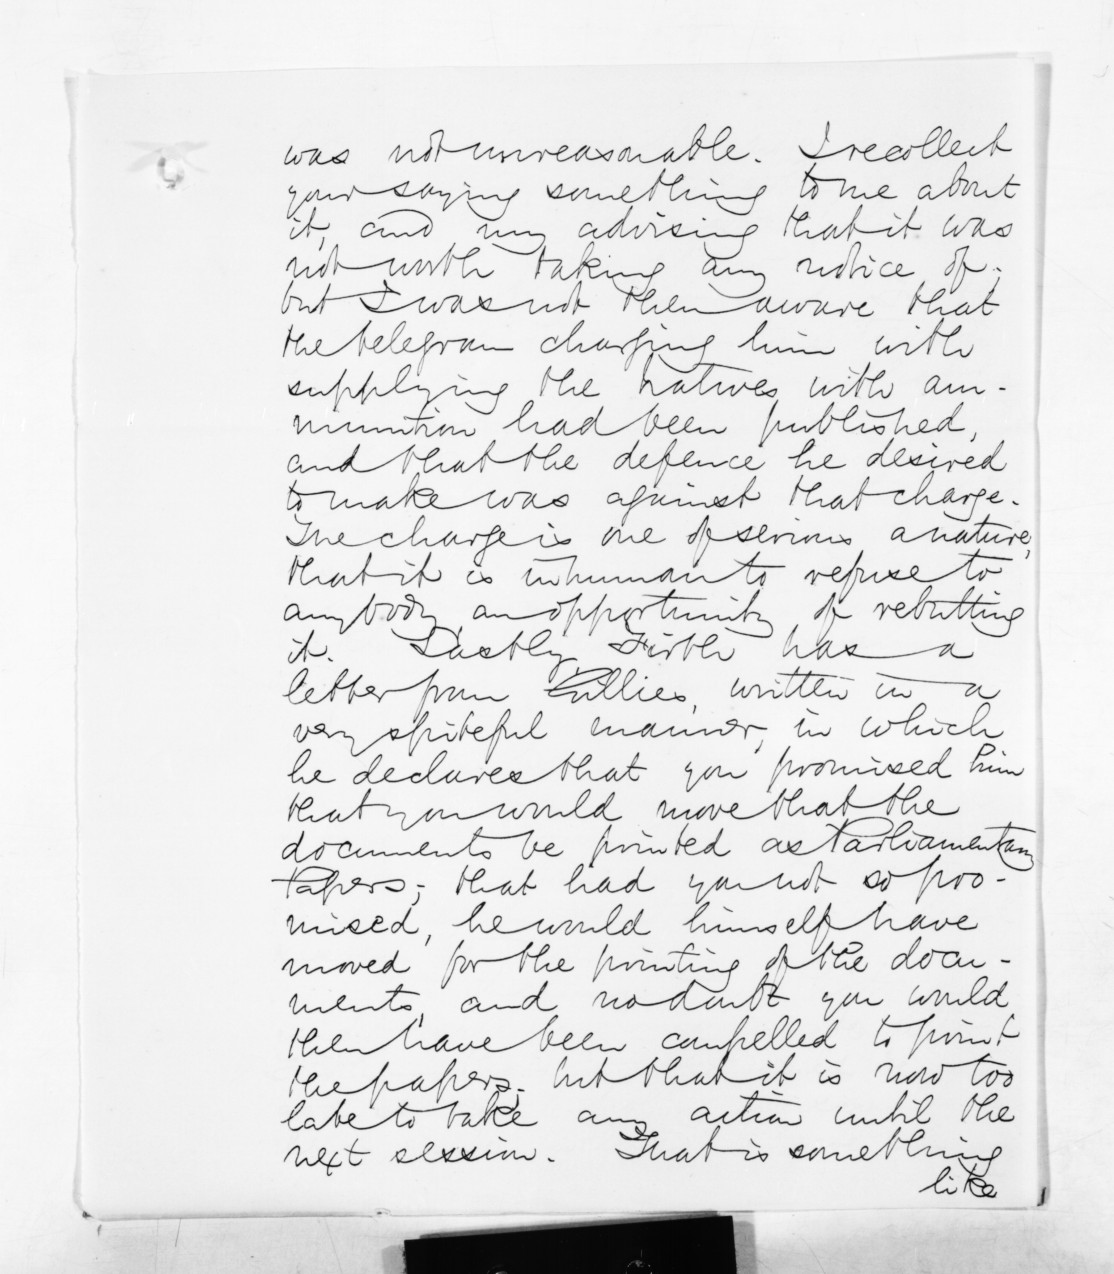 was not unreasonable. I recollect
your saying something to me about
it, and my advising that it was
not worth taking any notice of;
but I was not then aware that
the telegram charging him with
supplying the natives with am-
munition had been published,
and that the defence he desired
to make was against that charge.
The charge is one of serious a nature,
that it is inhuman to refuse to
anybody an opportunity of rebutting
it. Lastly, Firth has a
letter from Gillies, written in a
very spiteful manner, in which
he declares that you promised him
that you would move that the
documents be printed as Parliamentary
Papers; that had you not so pro-
mised, he would himself have
moved for the printing of the docu-
ments, and no doubt you would
then have been compelled to print
the papers; but that it is now too
late to take any action until the
next session. That is something
like